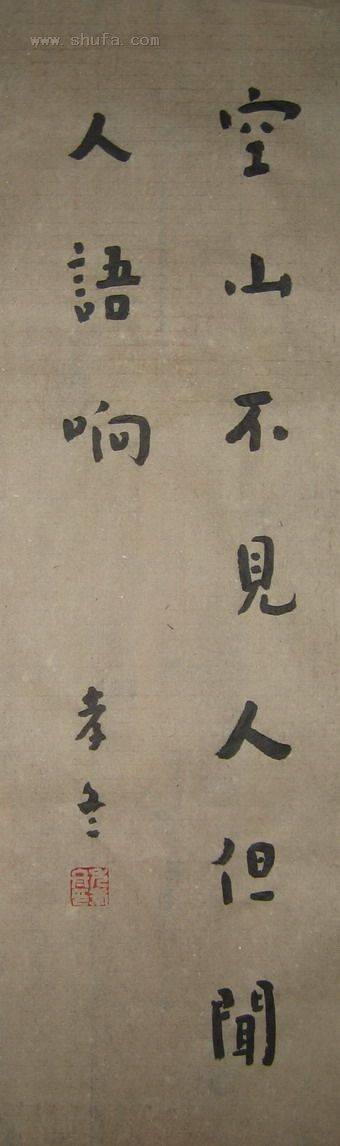 www.shufa.com
空山不見人但聞
人語响